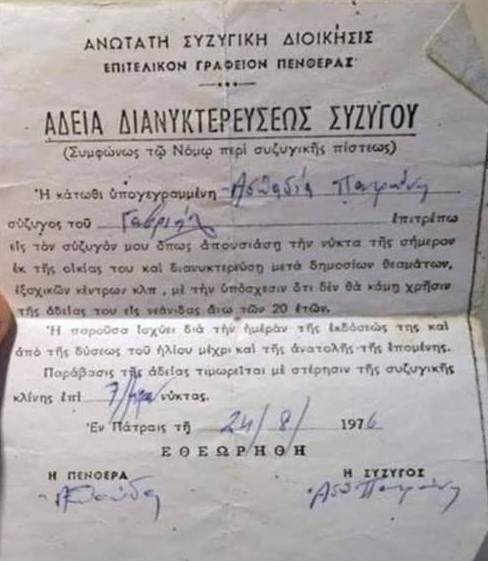 ΑΝΩΤΑΤΗ ΣΥΖΥΓΙΚΗ ΔΙΟΙΚΗΣΙΣ
ΕΠΙΤΕΛΙΚΟΝ ΓΡΑΦΕΙΟΝ ΠΕΝΘΕΡΑΣ
ΑΔΕΙΑ ΔΙΑΝΥΚΤΕΡΕΥΣΕΩΣ ΣΥΖΥΓΟΥ
(Συμφώνως τῷ Νόμῳ περὶ συζυγικῆς πίστεως)
Ἡ κάτωθι ὑπογεγραμμένη Ασπασία
σύζυγος τοῦ Γαβριήλ ἐπιτρέπω
εἰς τὸν σύζυγόν μου ὅπως ἀπουσιάσῃ τὴν νύκτα τῆς σήμερον
ἐκ τῆς οἰκίας του καὶ διανυκτερεύσῃ μετὰ δημοσίων θεαμάτων,
ἐξοχικῶν κέντρων κλπ , μὲ τὴν ὑπόσχεσιν ὅτι δὲν θὰ κάμῃ χρῆσιν
τῆς ἀδείας του εἰς νεάνιδας ἄνω τῶν 20 ἐτῶν.
Ἡ παροῦσα ἰσχύει διὰ τὴν ἡμέραν τῆς ἐκδόσεώς της καὶ
ἀπὸ τῆς δύσεως τοῦ ἡλίου μέχρι καὶ τῆς ἀνατολῆς τῆς ἑπομένης.
Παράβασις τῆς ἀδείας τιμωρεῖται μὲ στέρησιν τῆς συζυγικῆς
κλίνης ἐπὶ 7 νύκτας.
Ἐν Πάτραις τῇ 24/8/1976
ΕΘΕΩΡΗΘΗ
Η ΠΕΝΘΕΡΑ Η ΣΥΖΥΓΟΣ